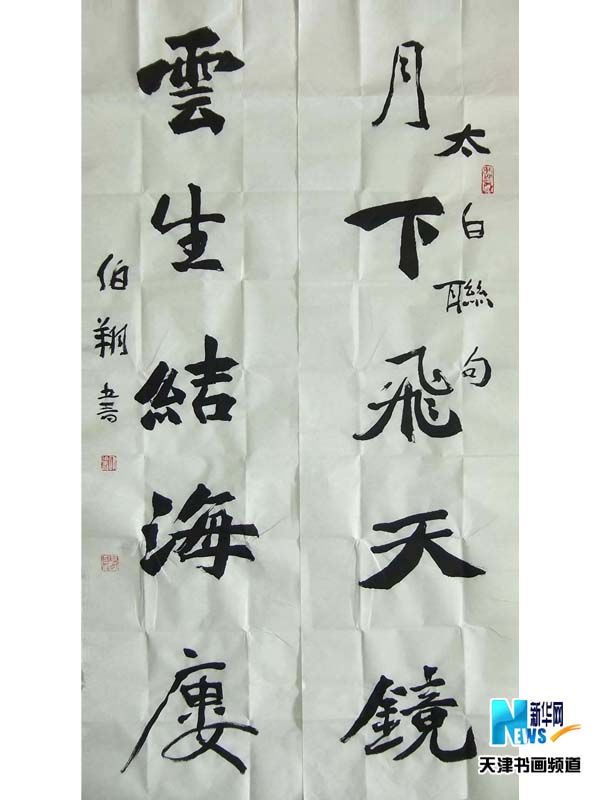 太白聯句
月下飛天鏡
雲生結海廔
伯翔書
新华网
NEWS
天津书画频道